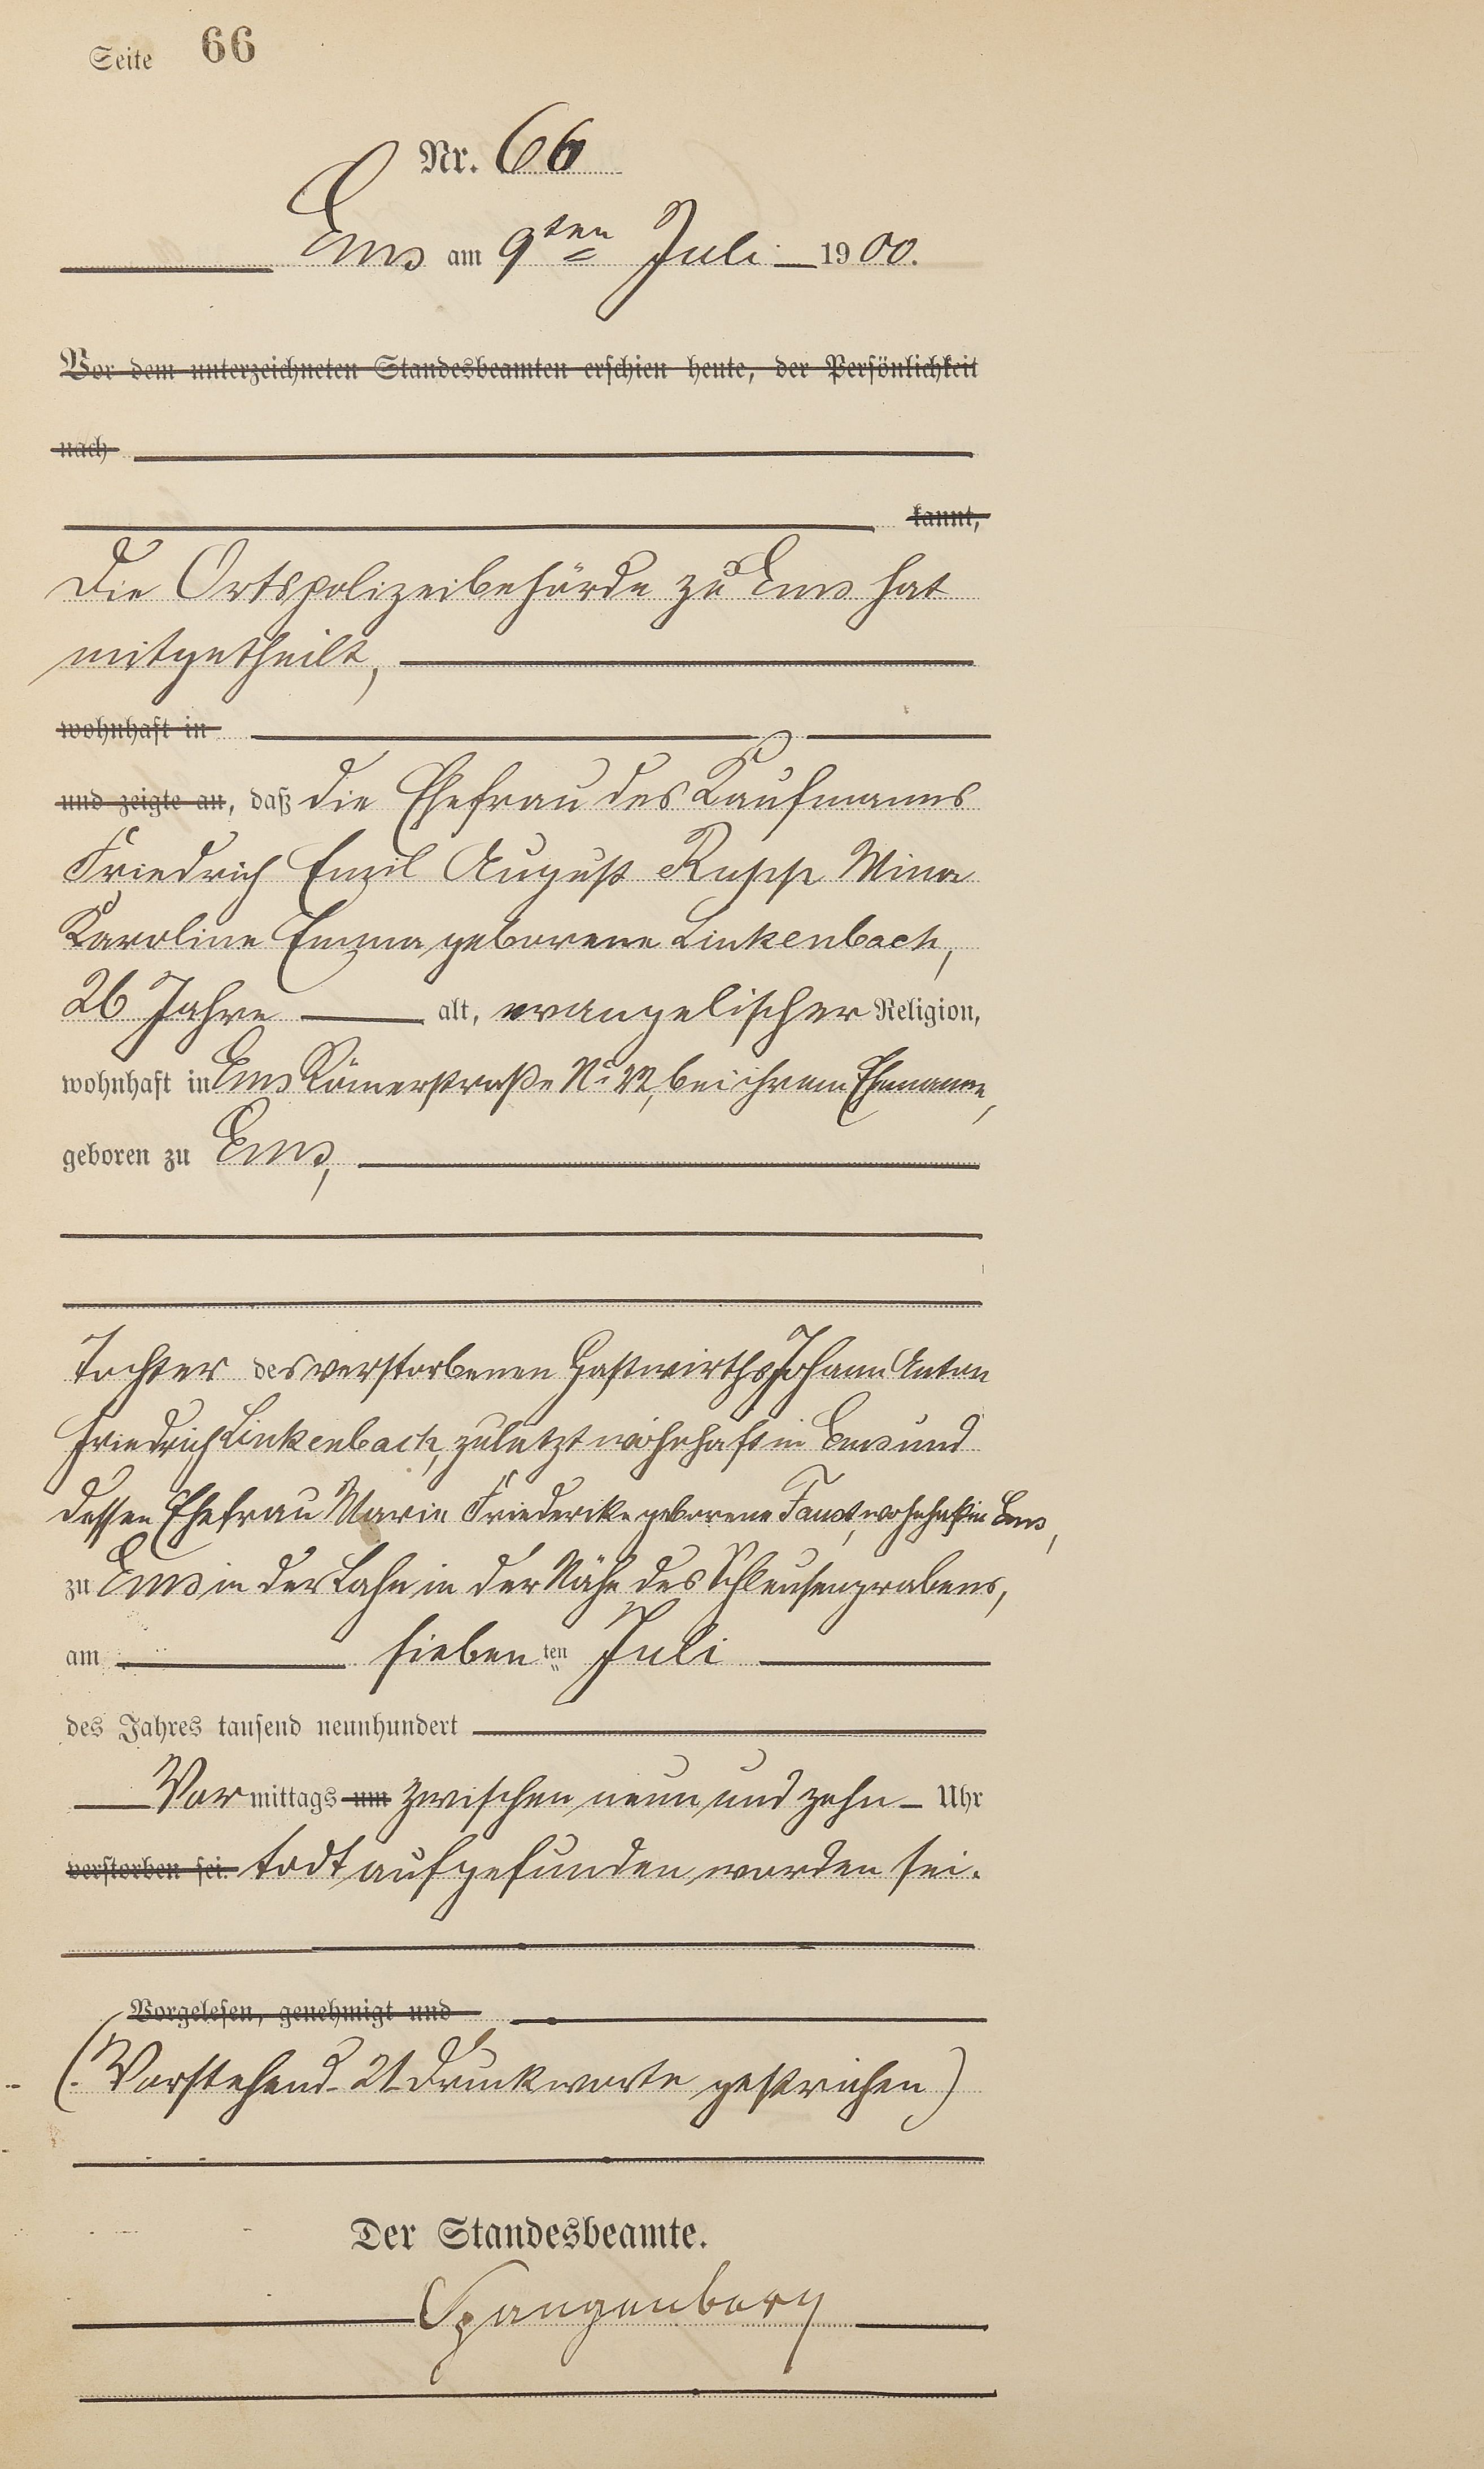 Seite 66
Nr. 66
Ems am 9ten Juli 1900.
Vor dem unterzeichneten Standesbeamten erschien heute, der Persönlichkeit
nach
kannt,
Die Ortspolizeibehörde zu Ems hat
mitgetheilt,
wohnhaft in
und zeigte an, daß die Ehefrau des Kaufmanns
Friedrich Emil August Rupp Mina
Karoline Emma geborene Linkenbach,
26 Jahre alt, evangelischer Religion,
wohnhaft in Ems Römerstraße No bei ihrem Ehemanne,
geboren zu Ems,
Tochter des verstorbenen Gastwirths Johann Anton
Friedrich Linkenbach, zuletzt wohnhaft in Ems und
dessen Ehefrau Marie Friederike geborene Faust, wohnhaft in Ems,
zu Ems in der Lahn in der Nähe des Schleusengrabens,
am siebenten Juli
des Jahres tausend neunhundert
Vormittags um zwischen neun und zehn Uhr
verstorben sei. todt aufgefunden worden sei.
Vorgelesen, genehmigt und
(Vorstehend 21 Druckworte gestrichen)
Der Standesbeamte.
Spangenberg